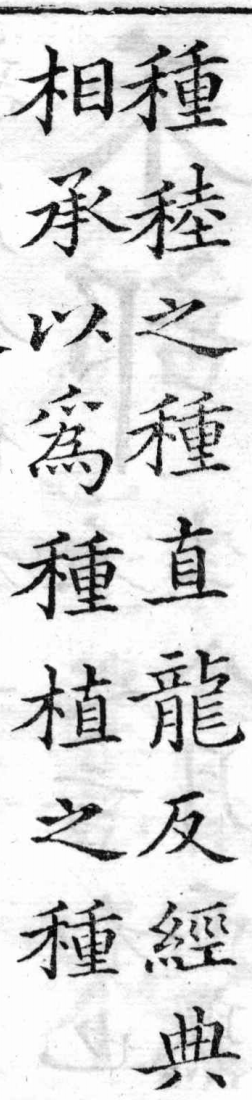 種稑之種直龍反經典
相承以爲種植之種